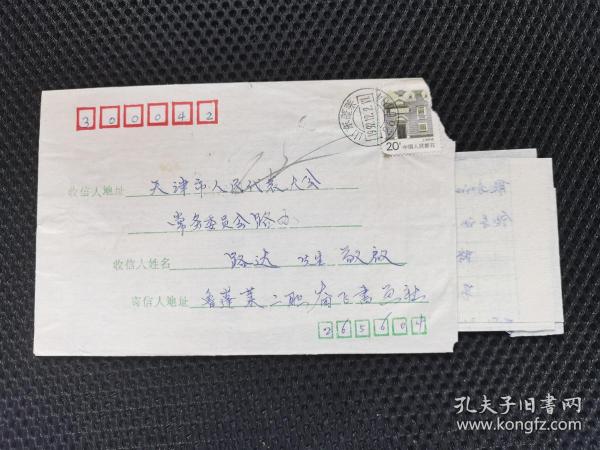 300042
山东蓬莱
1992.12.2.
20分 中国人民邮政
收信人地址 天津市人民代表大会
常务委员会路办
收信人姓名 路达 先生 敬启
寄信人地址 鲁蓬莱二职奋飞书画社
265604
孔夫子旧书网
www.kongfz.com